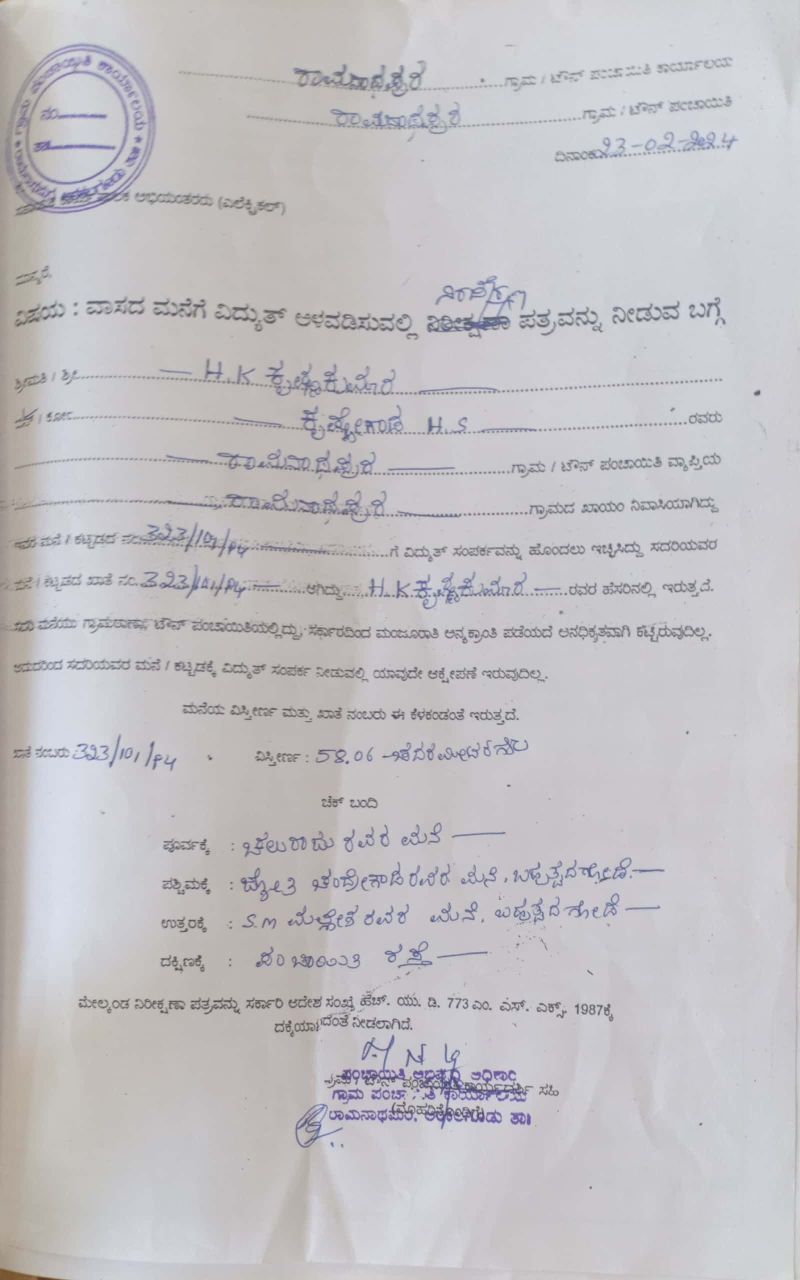 ರಾಮನಾಥಪುರ ಗ್ರಾಮ / ಟೌನ್ ಪಂಚಾಯಿತಿ ಕಾರ್ಯಾಲಯ
ರಾಮನಾಥಪುರ ಗ್ರಾಮ / ಟೌನ್ ಪಂಚಾಯಿತಿ
ಗ್ರಾಮ ಪಂಚಾಯಿತಿ ಕಾರ್ಯಾಲಯ
ನಂ
ದಿನಾಂಕ 23-02-2024
ಅಭಿಯಂತರರು (ಎಲೆಕ್ಟ್ರಿಕಲ್)
ಮಾನ್ಯರೆ,
ನಿರಾಪೇಕ್ಷಣಾ
ವಿಷಯ : ವಾಸದ ಮನೆಗೆ ವಿದ್ಯುತ್ ಅಳವಡಿಸುವಲ್ಲಿ ನಿರೀಕ್ಷಣಾ ಪತ್ರವನ್ನು ನೀಡುವ ಬಗ್ಗೆ
ಶ್ರೀಮತಿ / ಶ್ರೀ H.K ಕೃಷ್ಣಕುಮಾರ
ಕೋಂ ಕೃಷ್ಣೇಗೌಡ H.S ರವರು
ರಾಮನಾಥಪುರ ಗ್ರಾಮ / ಟೌನ್ ಪಂಚಾಯಿತಿ ವ್ಯಾಪ್ತಿಯ
ರಾಮನಾಥಪುರ ಗ್ರಾಮದ ಖಾಯಂ ನಿವಾಸಿಯಾಗಿದ್ದು
ಇವರ ಮನೆ / ಕಟ್ಟಡದ ನಂ. 323/101/94 ಗೆ ವಿದ್ಯುತ್ ಸಂಪರ್ಕವನ್ನು ಹೊಂದಲು ಇಚ್ಛಿಸಿದ್ದು ಸದರಿಯವರ
ಮನೆ / ಕಟ್ಟಡದ ಖಾತೆ ನಂ. 323/101/94 ಆಗಿದ್ದು H.K ಕೃಷ್ಣಕುಮಾರ ರವರ ಹೆಸರಿನಲ್ಲಿ ಇರುತ್ತದೆ.
ಸದರಿ ಮನೆಯು ಗ್ರಾಮಠಾಣಾ, ಟೌನ್ ಪಂಚಾಯಿತಿಯಲ್ಲಿದ್ದು, ಸರ್ಕಾರದಿಂದ ಮಂಜೂರಾತಿ ಅನ್ಯಕ್ರಾಂತಿ ಪಡೆಯದೆ ಅನಧಿಕೃತವಾಗಿ ಕಟ್ಟಿರುವುದಿಲ್ಲ.
ಆದುದರಿಂದ ಸದರಿಯವರ ಮನೆ / ಕಟ್ಟಡಕ್ಕೆ ವಿದ್ಯುತ್ ಸಂಪರ್ಕ ನೀಡುವಲ್ಲಿ ಯಾವುದೇ ಆಕ್ಷೇಪಣೆ ಇರುವುದಿಲ್ಲ.
ಮನೆಯ ವಿಸ್ತೀರ್ಣ ಮತ್ತು ಖಾತೆ ನಂಬರು ಈ ಕೆಳಕಂಡಂತೆ ಇರುತ್ತದೆ.
ಖಾತೆ ನಂಬರು 323/101/94 ವಿಸ್ತೀರ್ಣ : 58.06 ಚದರಮೀಟರಗಳು
ಚೆಕ್ ಬಂದಿ
ಪೂರ್ವಕ್ಕೆ : ಚಲುರಾಮ ರವರ ಮನೆ
ಪಶ್ಚಿಮಕ್ಕೆ : ಜ್ಯೋತಿ ಚಂದ್ರೇಗೌಡ ರವರ ಮನೆ,
ಉತ್ತರಕ್ಕೆ : S.M ಮಲ್ಲೇಶ ರವರ ಮನೆ,
ದಕ್ಷಿಣಕ್ಕೆ : ಪಂಚಾಯಿತಿ ರಸ್ತೆ
ಮೇಲ್ಕಂಡ ನಿರೀಕ್ಷಣಾ ಪತ್ರವನ್ನು ಸರ್ಕಾರಿ ಆದೇಶ ಸಂಖ್ಯೆ ಹೆಚ್. ಯು. ಡಿ. 773 ಎಂ. ಎಸ್. ಎಕ್ಸ್. 1987ಕ್ಕೆ
ದಕ್ಕೆಯಾಗದಂತೆ ನೀಡಲಾಗಿದೆ.
ಪಂಚಾಯಿತಿ ಅಭಿವೃದ್ಧಿ ಅಧಿಕಾರಿ
ಗ್ರಾಮ / ಟೌನ್ ಪಂಚಾಯಿತಿ ಕಾರ್ಯದರ್ಶಿ ಸಹಿ
ಗ್ರಾಮ ಪಂಚಾಯಿತಿ ಕಾರ್ಯಾಲಯ
(ಮೊಹರಿನೊಂದಿಗೆ)
ರಾಮನಾಥಪುರ, ಅರಕಲಗೂಡು ತಾ||